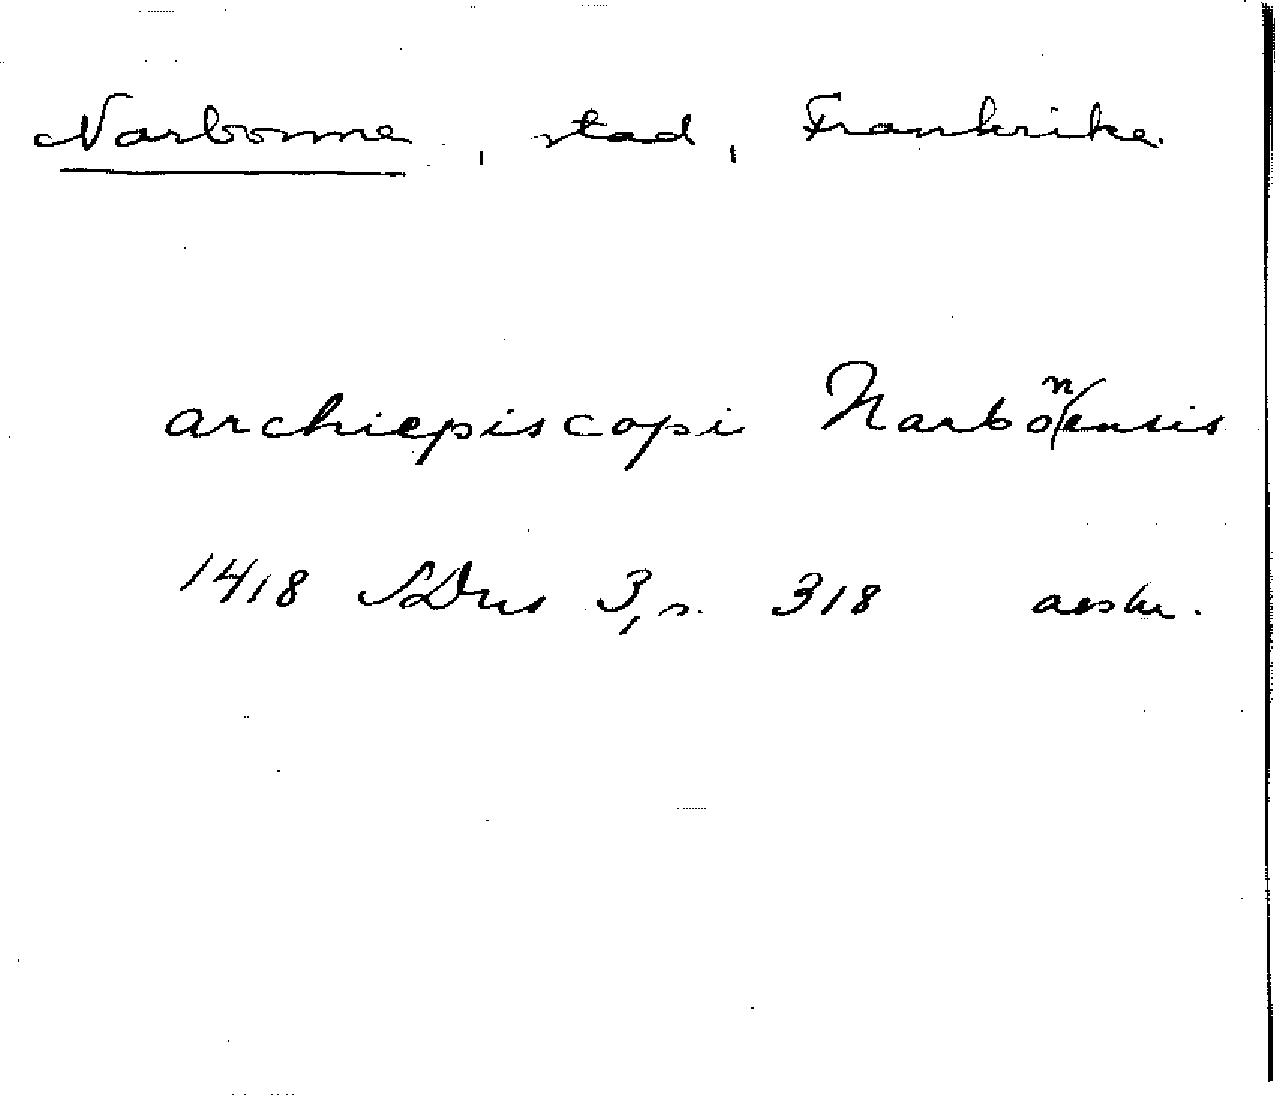 Narbonne, stad, Frankrike.
archiepiscopi Narbonensis
1418 SDns 3, s. 318 avskr.